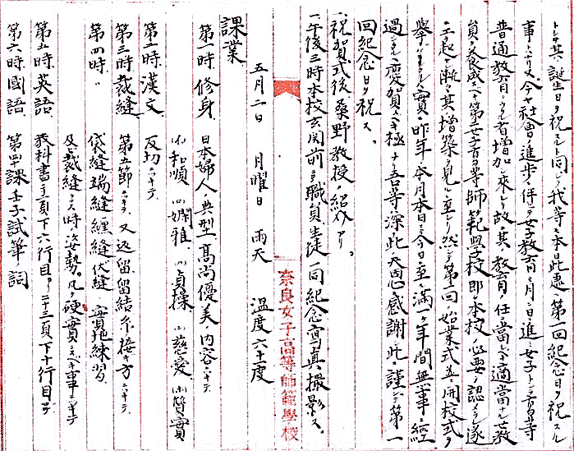 トシテ其誕生日ヲ祝スト同ジク我等ハ本日此慶シキ第一回紀念日ヲ祝スル
事トナリヌ今ヤ社會ノ進歩ニ伴ヒ女子教育ハ日ニ月ニ進ミ女子ニシテ高等
普通教育ヲ
員ノ良成スベキ第女子高等師範學校即チ本校ノ必要ヲ認メラレ遂
ニ起工漸ク其増築ヲ見ルニ至レリ然シテ第一回ノ始業式並ニ開校式ヲ
舉ゲラレシハ實ニ昨年本月本日ニシテ今日ニ至ル滿一ケ年間無事ニ經
過シタルハ慶賀スベキ極ナリ吾等深ク此天恩ヲ感謝シ此ニ謹デ第一
回紀念日ヲ祝ス。
祝賀式後桑野教授ノ紹介アリ。
一、午後三時本校玄関前ニテ職員生徒一同紀念寫真撮影ス。
五月二日 月曜日 雨天 温度六十二度
奈良女子高等師範學校
課業
第一時 修身 日本婦人ノ典型(高尚優美)ノ内容ニツキテ
(1)和順(2)嫻雅(3)貞操(4)慈愛(5)質實
第二時 漢文 反切ニツキテ
第三時 裁縫 第五節ニツキテ 又返留、留結ビ、糸接ギ方ニツキテ
第四時 〃 袋縫端縫纏縫伏縫ノ實地練習
及ビ裁縫スル時ノ姿勢
第五時 英語 教科書二十二頁下六行目ヨリ二十三頁下十行目マデ
第六時 國語 第四課 士子試筆ノ詞